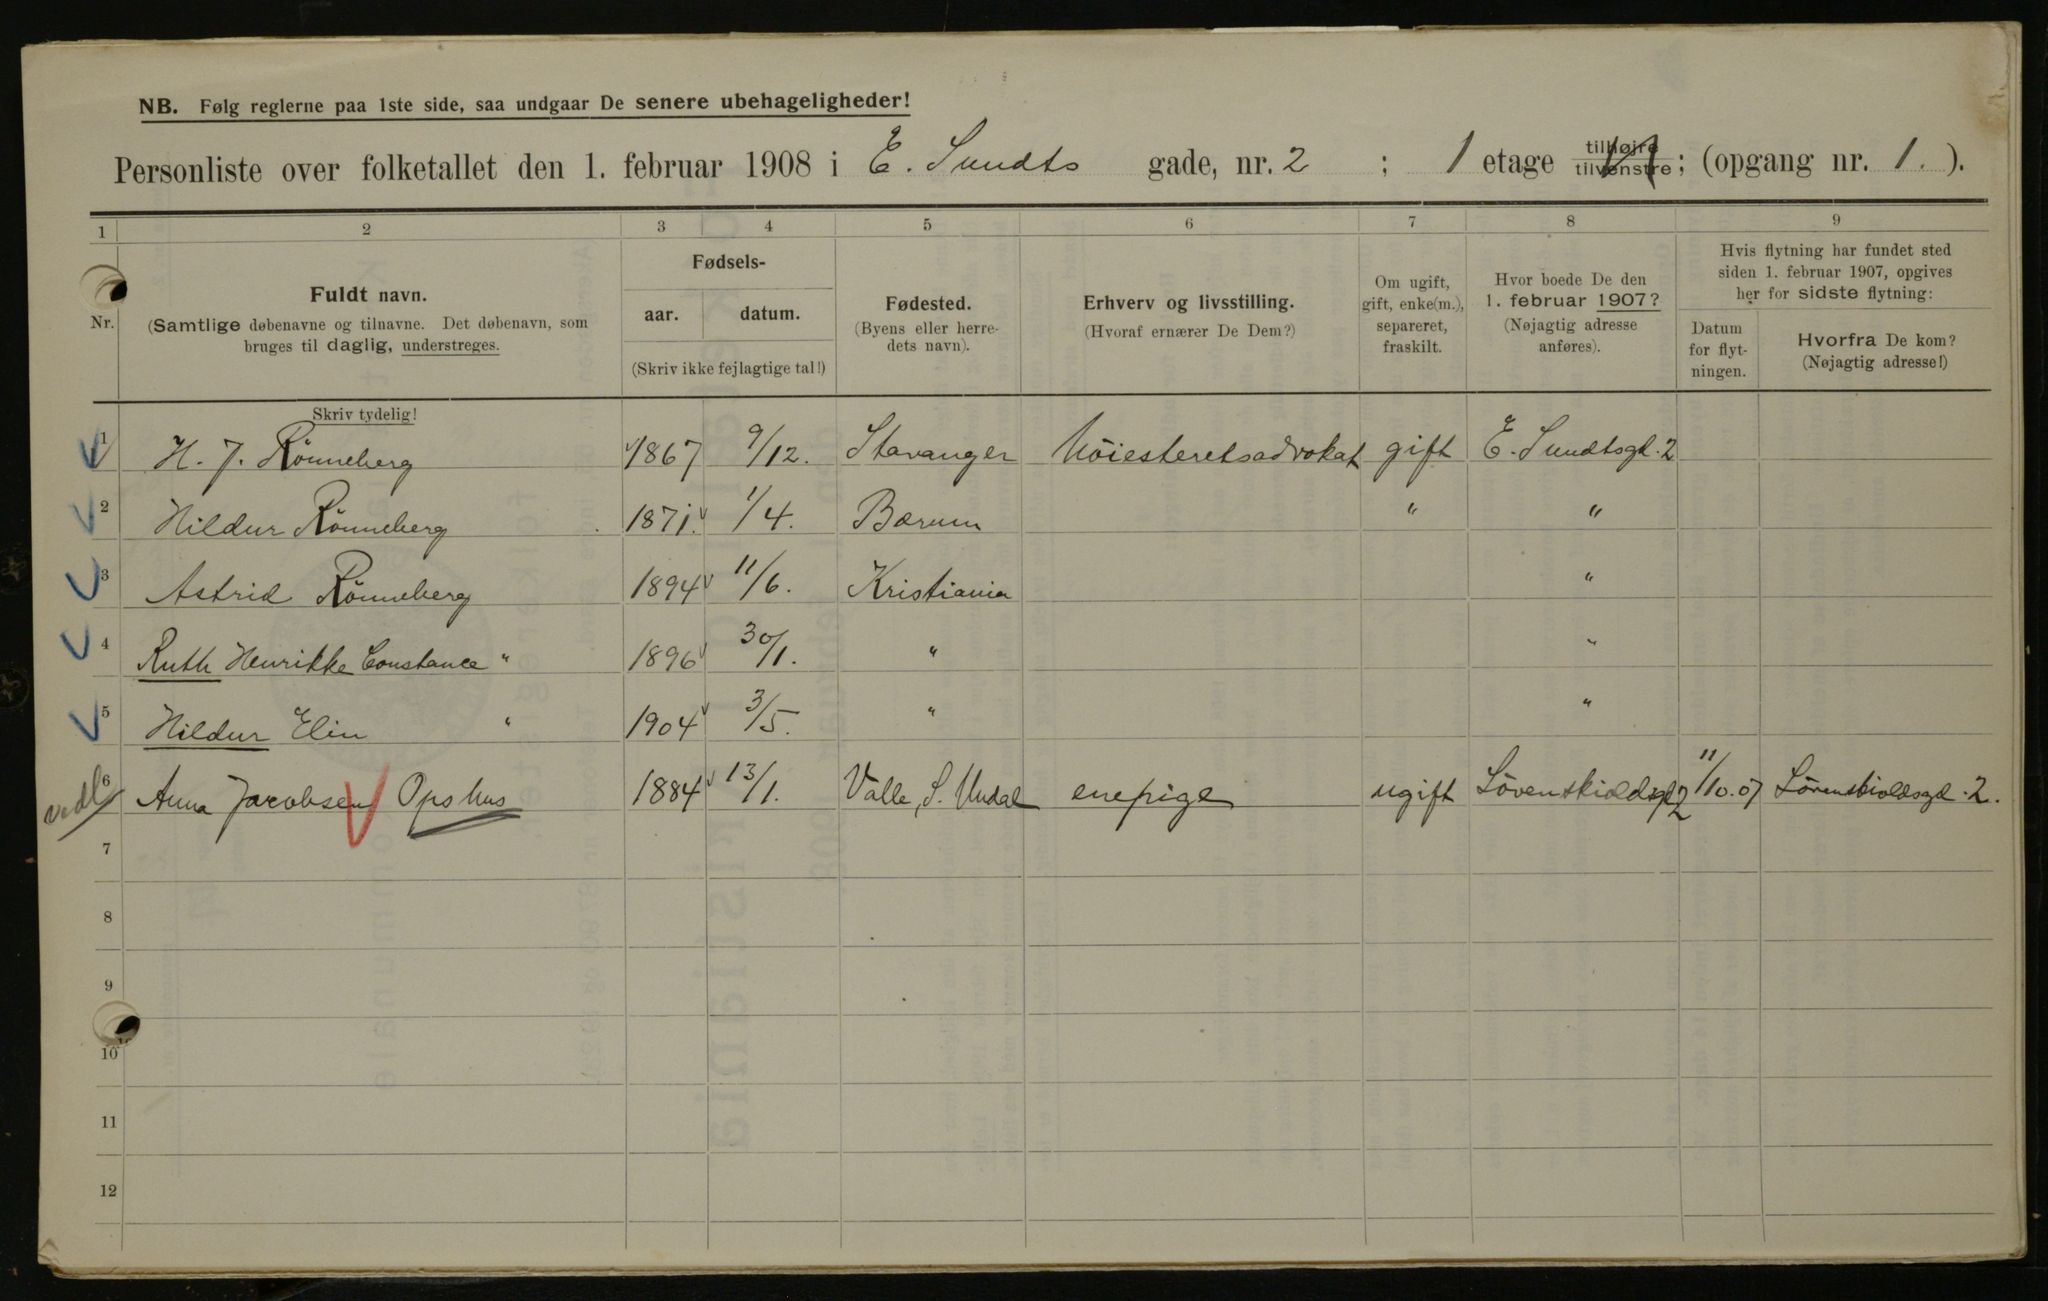 NB. Følg reglerne paa 1ste side, saa undgaar De senere ubehageligheder!
Personliste over folketallet den 1. februar 1908 i E. Sundts gade, nr. 2 ; 1 etage tilhøjre tilvenstre; (opgang nr. 1. ).
1 2 3 4 5 6 7 8 9
Nr.
Fuldt navn.
(Samtlige døbenavne og tilnavne. Det døbenavn, som
bruges til daglig, understreges.
Fødsels-
aar. datum.
(Skriv ikke fejlagtige tal!)
Fødested.
(Byens eller herre-
dets navn).
Erhverv og livsstilling.
(Hvoraf ernærer De Dem?)
Om ugift,
gift, enke(m.),
separeret,
fraskilt.
Hvor boede De den
1. februar 1907?
(Nøjagtig adresse
anføres).
Hvis flytning har fundet sted
siden 1. februar 1907, opgives
her for sidste flytning:
Datum
for flyt-
ningen.
Hvorfra De kom?
(Nøjagtig adresse!)
Skriv tydelig!
1 H. J. Rönneberg 1867 9/12. Stavanger Höiesteretsadvokat gift E. Sundtsgd. 2
2 Hildur Rönneberg 1871. 1/4. Bærum " "
3 Astrid Rönneberg 1894 11/6. Kristiania "
4 Ruth Henrikke Constance " 1896 30/1. " "
5 Hildur Elin " 1904 3/5. " "
6 Anna Jacobsen Opshus 1884 13/1. Valle, S. Undal enepige ugift Lövenskioldsgd 2 11/10.07 Lövenskioldsgd. 2.
7
8
9
10
11
12